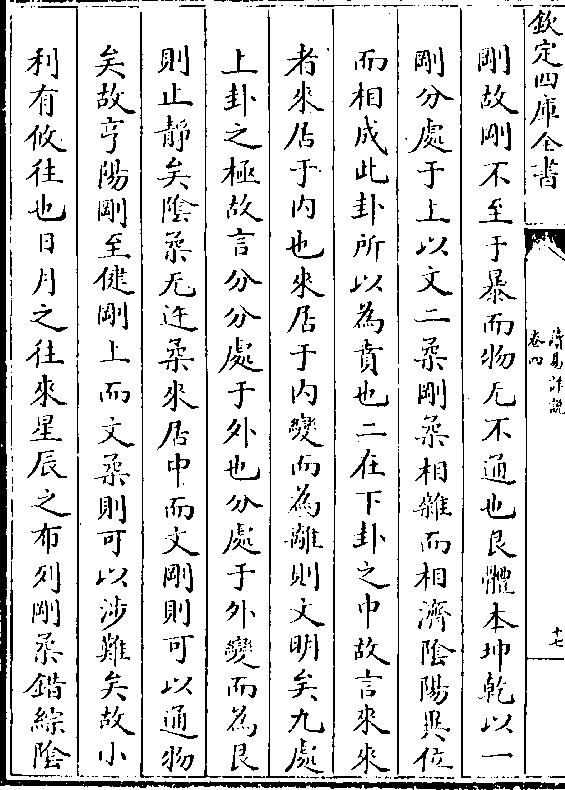 欽定四庫全書
讀易詳說
卷四
十七
剛故剛不至于暴而物无不通也艮體本坤乾以一
剛分處于上以文二柔剛柔相雜而相濟陰陽異位
而相成此卦所以為賁也二在下卦之中故言來來
者來居于内也來居于内變而為離則文明矣九處
上卦之極故言分分處于外也分處于外變而為艮
則止静矣陰柔无迕柔來居中而文剛則可以通物
矣故亨陽剛至健剛上而文柔則可以涉難矣故小
利有攸往也日月之往來星辰之布列剛柔錯綜陰